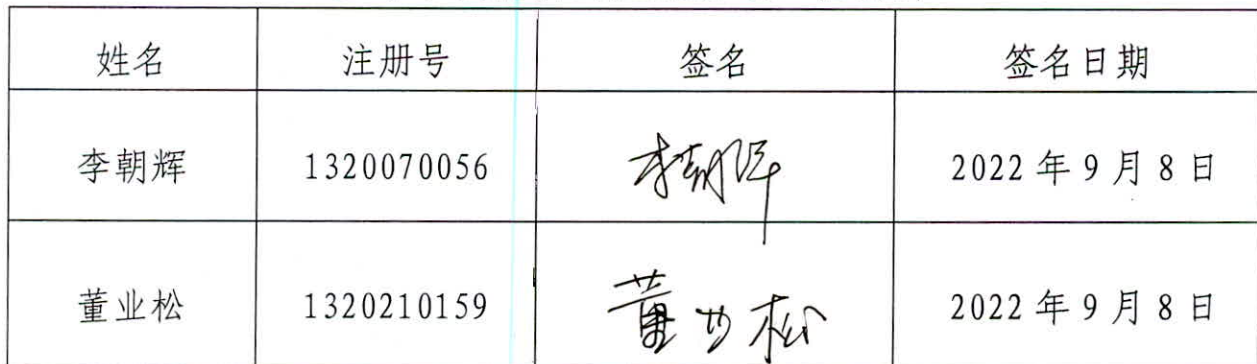 姓名 注册号 签名 签名日期
李朝辉 1320070056 李朝晖 2022年9月8日
董业松 1320210159 董业松 2022年9月8日